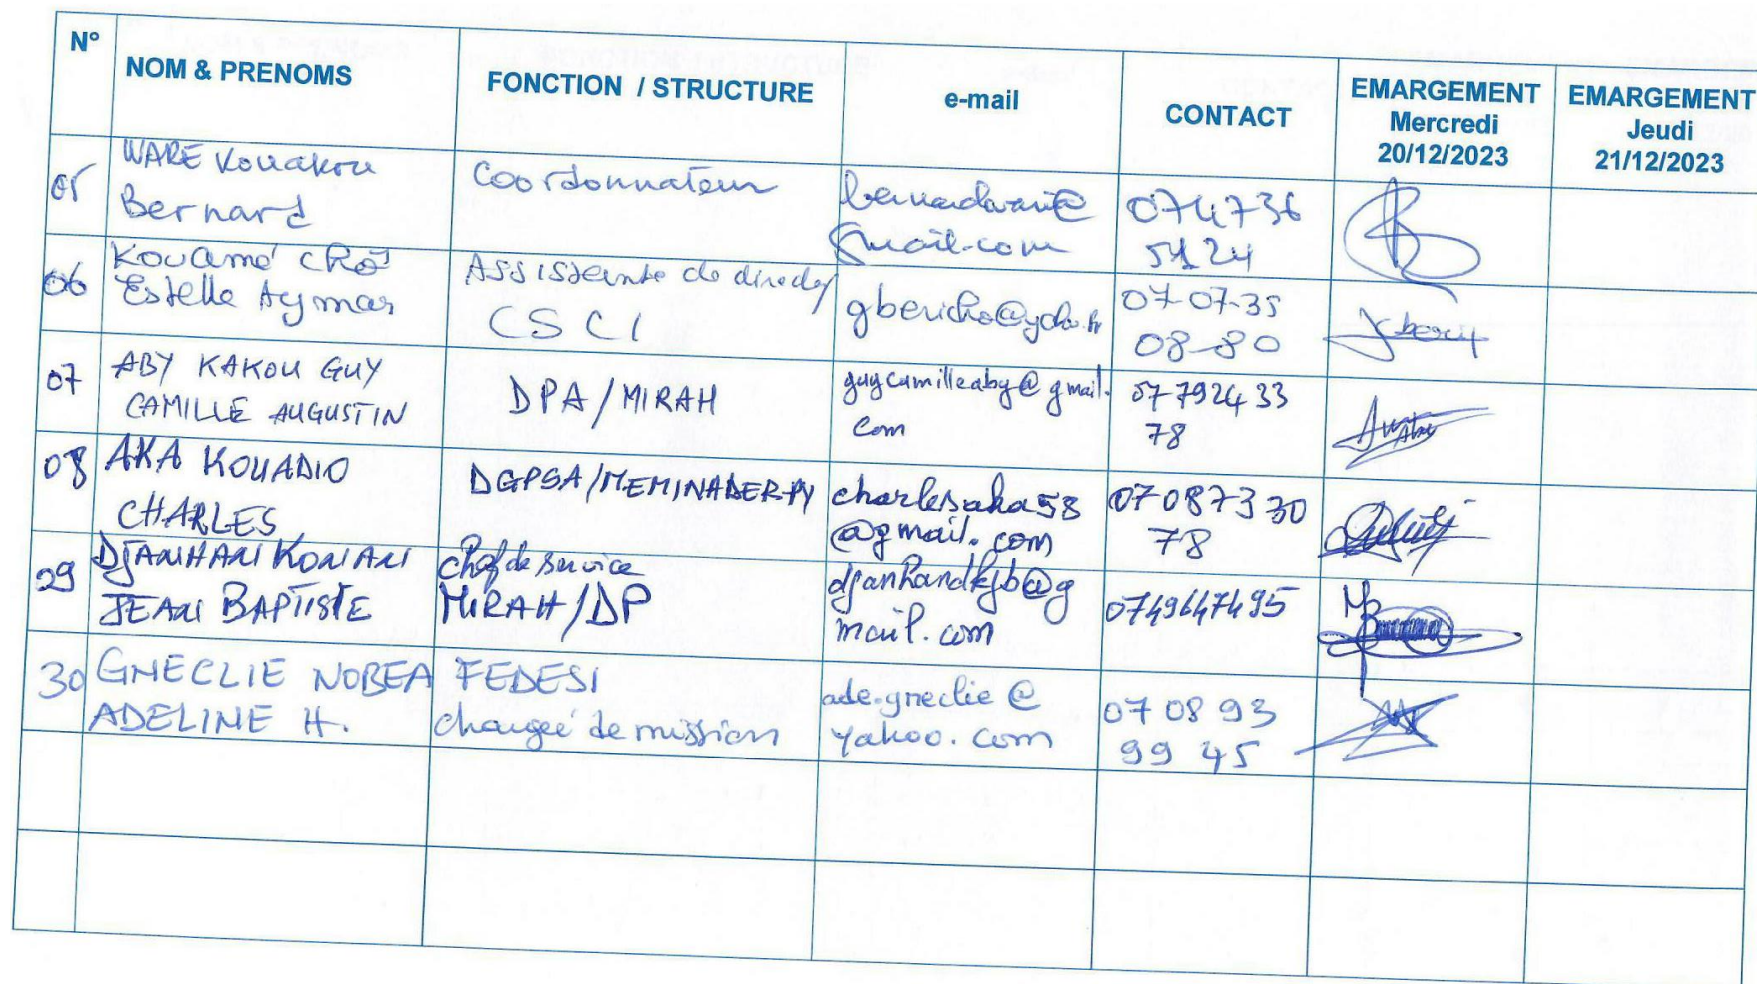 N°
NOM & PRENOMS
FONCTION / STRUCTURE
e-mail
CONTACT
EMARGEMENT
Mercredi
20/12/2023
EMARGEMENT
Jeudi
21/12/2023
05
WARE Kouakou
Bernard
Coordonnateur
bernardware@
gmail.com
074736
5124
06
Kouamé
Estelle Aymar
Assistante de
CSCI
07-07-35
08-80
07
ABY KAKOU GUY
CAMILLE AUGUSTIN
DPA/MIRAH
guycamilleaby@gmail.
com
07 792433
78
08
AKA KOUADIO
CHARLES
DGPSA/MEMINADER-PV
charlesaka58
@gmail.com
07087330
78
29
DJANHAN KONAN
JEAN BAPTISTE
Chef de service
MIRAH/DP
mail.com
0749647495
30
GNECLIE NOBEA
ADELINE H.
FEDESI
chargée de mission
ade.gneclie@
yahoo.com
07 08 93
99 45